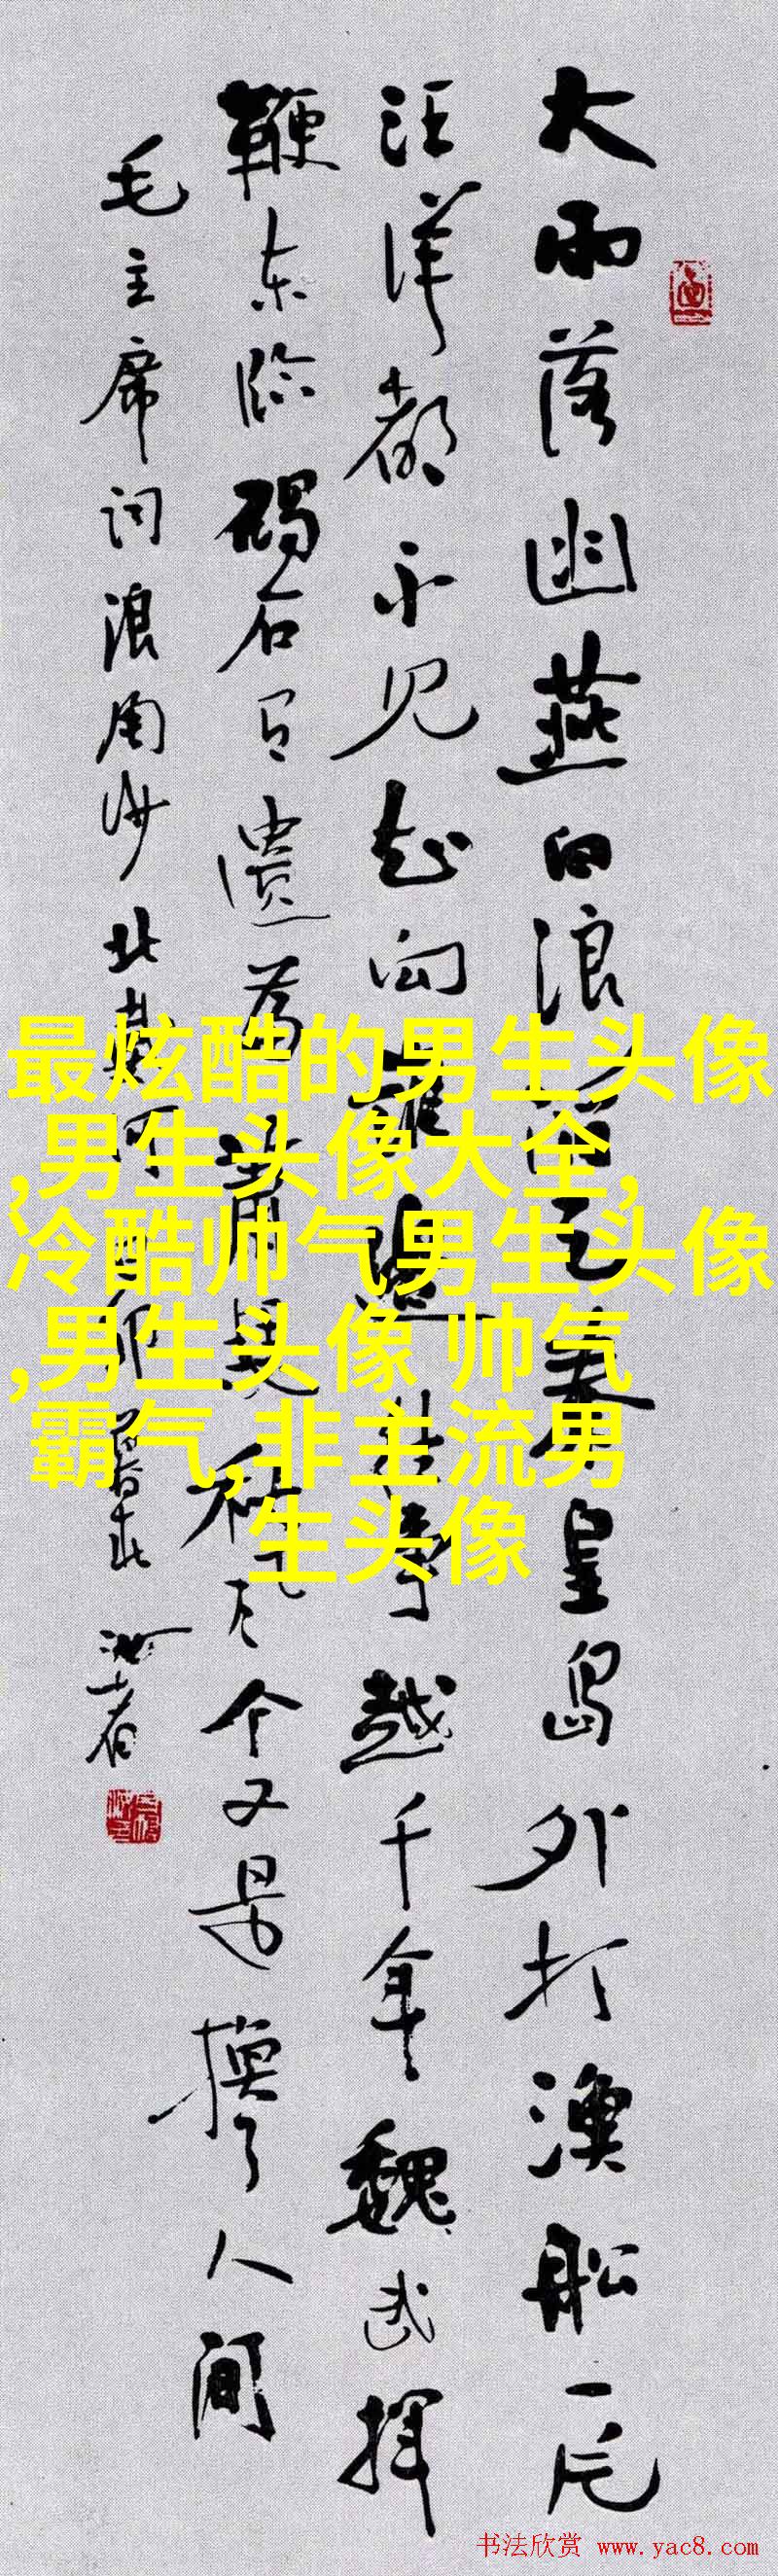 大雨落幽燕白浪滔天秦皇島外打漁船一片
汪洋都不见知向誰邊往事越千年魏武揮
鞭东临碣石有遗篇蕭瑟秋风今又是換了人间
毛主席词浪淘沙北戴河
最炫酷的男生头像
,男生头像大全,
冷酷帅气男生头像
,男生头像 帅气
霸气,非主流男
生头像
书法欣赏 www.yac8.com